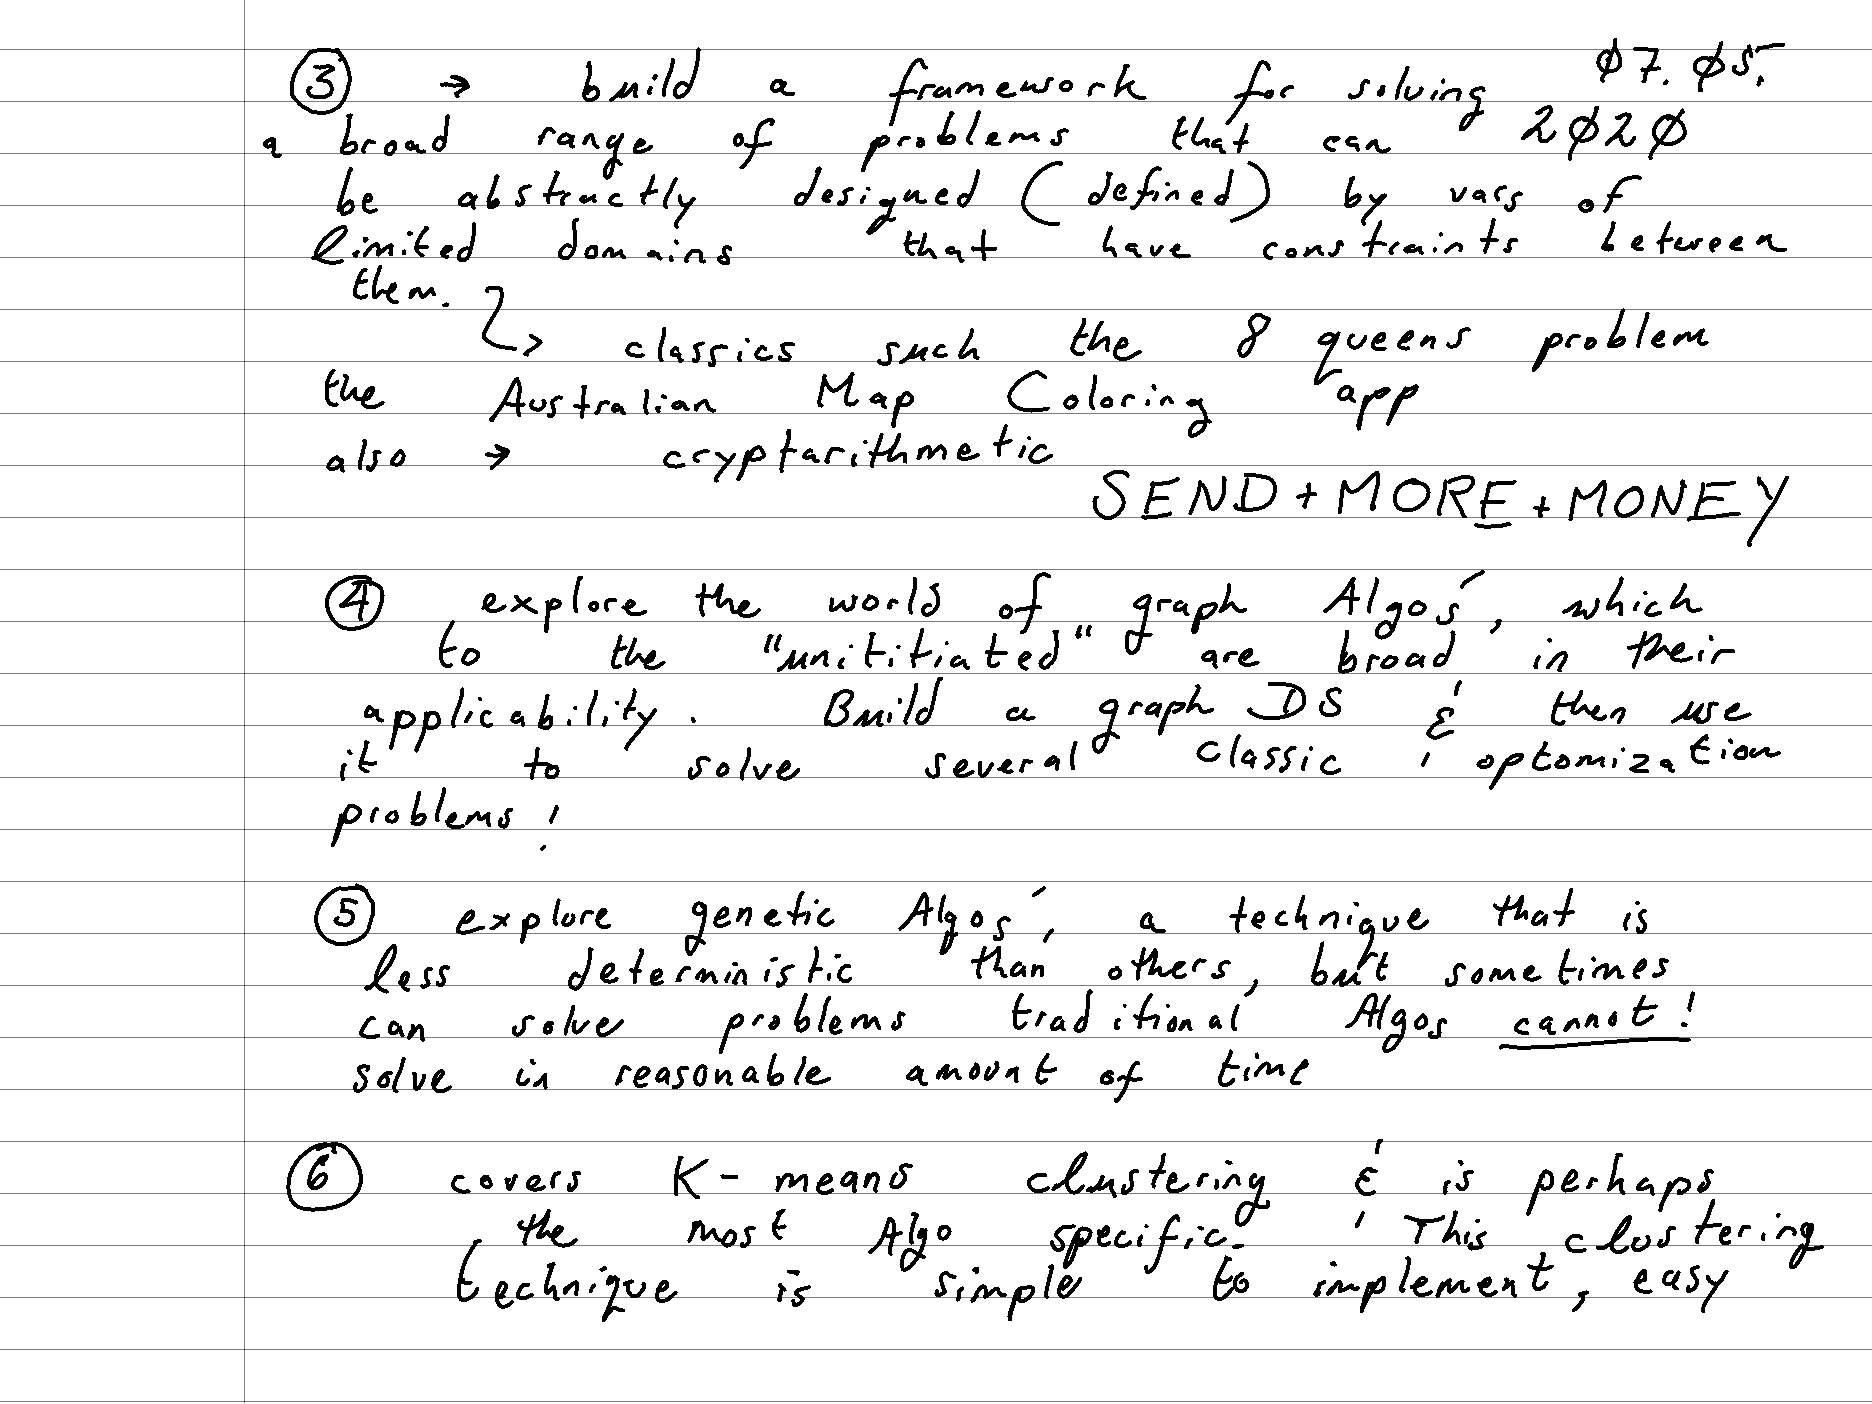 ③ → build a framework for solving 07.05.
a broad range of problems that can 2020
be abstractly designed (defined) by vars of
limited domains that have constraints between
them.
↳ classics such the 8 queens problem
the Australian Map Coloring app
also → cryptarithmetic
SEND + MORE + MONEY
④ explore the world of graph Algos', which
to the "unititiated" are broad in their
applicability. Build a graph DS & then use
it to solve several classic optomization
problems!
⑤ explore genetic Algos', a technique that is
less deterministic than others, but sometimes
can solve problems traditional Algos cannot!
solve in reasonable amount of time
⑥ covers K-means clustering & is perhaps
the most Algo specific. This clustering
technique is simple to implement, easy